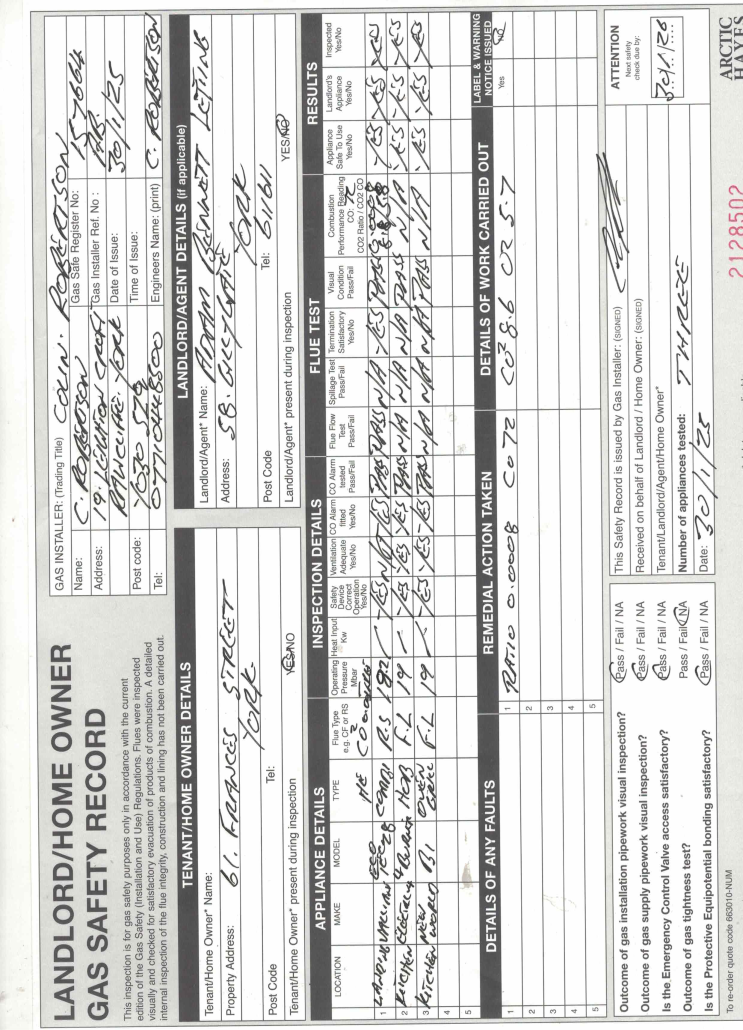 LANDLORD/HOME OWNER
GAS SAFETY RECORD
This inspection is for gas safety purposes only in accordance with the current
edition of the Gas Safety (Installation and Use) Regulations. Flues were inspected
visually and checked for satisfactory evacuation of products of combustion. A detailed
internal inspection of the flue integrity, construction and lining has not been carried out.
GAS INSTALLER: (Trading Title) COLIN. ROBERTSON
Name: C. ROBERTSON Gas Safe Register No: 157664
Address: 19. Gas Installer Ref. No :
RAWCLIFFE YORK Date of Issue: 30/1/25
Post code: YO30 Time of Issue:
Tel: Engineers Name: (print) C. ROBERTSON
TENANT/HOME OWNER DETAILS
Tenant/Home Owner* Name:
Property Address: 61. FRANCES STREET
YORK
Post Code Tel:
Tenant/Home Owner* present during inspection YES/NO
LANDLORD/AGENT DETAILS (if applicable)
Landlord/Agent* Name: ADAM BENNETT LETING
Address: 58. GILLYGATE
YORK
Post Code Tel: 611611
Landlord/Agent* present during inspection YES/NO
APPLIANCE DETAILS INSPECTION DETAILS FLUE TEST RESULTS
LOCATION MAKE MODEL TYPE Flue Type e.g. CF or RS Operating Pressure Mbar Heat Input Kw Safety Device Correct Operation Yes/No Ventilation Adequate Yes/No CO Alarm fitted Yes/No CO Alarm tested Pass/Fail Flue Flow Test Pass/Fail Spillage Test Pass/Fail Termination Satisfactory Yes/No Visual Condition Pass/Fail Combustion Performance Reading CO: CO2 Ratio / CO2 CO Appliance Safe To Use Yes/No Landlord's Appliance Yes/No Inspected Yes/No
1 LANDING VAILLANT ECO TEC 28 HE COMBI R.S 18.2 YES N/A YES PASS PASS N/A YES PASS YES YES YES
2 KITCHEN 4 BURNER HOB F.L 19 YES YES YES PASS N/A N/A N/A PASS N/A YES YES YES
3 KITCHEN NEW WORLD B1 OVEN GRILL F.L 19 YES YES YES PASS N/A N/A N/A PASS N/A YES YES YES
4
5
DETAILS OF ANY FAULTS REMEDIAL ACTION TAKEN DETAILS OF WORK CARRIED OUT LABEL & WARNING NOTICE ISSUED
1 1 RATIO 0.0008 CO 72 CO2 8.6 O2 5.7 Yes NO
2 2
3 3
4 4
5 5
Outcome of gas installation pipework visual inspection? Pass / Fail / NA
Outcome of gas supply pipework visual inspection? Pass / Fail / NA
Is the Emergency Control Valve access satisfactory? Pass / Fail / NA
Outcome of gas tightness test? Pass / Fail / NA
Is the Protective Equipotential bonding satisfactory? Pass / Fail / NA
This Safety Record is issued by Gas Installer: (SIGNED)
Received on behalf of Landlord / Home Owner: (SIGNED)
Tenant/Landlord/Agent/Home Owner*
Number of appliances tested: THREE
Date: 30/1/25
ATTENTION
Next safety
check due by:
30/1/26
To re-order quote code 663010-NUM
2128502
ARCTIC
HAYES